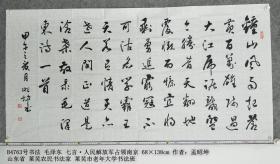 鐘山風雨起蒼
黄百万雄師過
大江虎踞龍盤
今勝昔天翻地
覆慨而慷宜將
剩勇追窮寇不
可沽名學霸王
天若有情天亦
老人间正道是
滄桑 錄毛澤
東诗一首
甲午之月 昭坤
B4763号书法 毛泽东 七言·人民解放军占领南京 68×138cm 作者:孟昭坤
山东省 莱芜农民书法家 莱芜市老年大学书法班